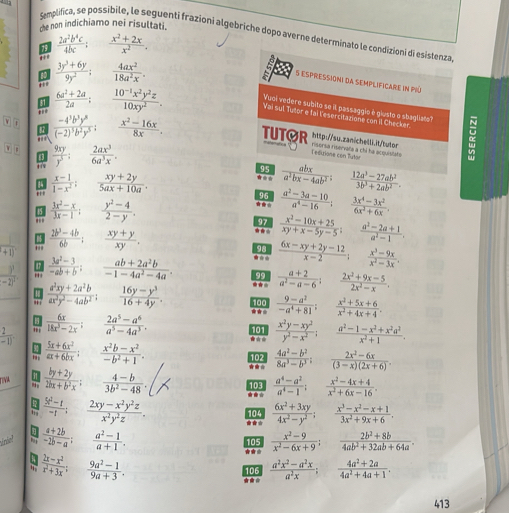 Semplifica, se possibile, le seguenti frazioni algebriche dopo averne determinato le condizioni di esistenza,
che non indichiamo nei risultati.
79 2a²b⁴c/4bc; x²+2x/x².
80 3y³+6y/9y²; 4ax²/18a²x.
81 6a²+2a/2a; 10⁻¹x²y²z/10xy².
82 x²−16x/8x.
83 9xy/y³; 2ax³/6a³x.
84 x−1/1−x²; xy+2y/5ax+10a.
85 3x²−x/3x−1; y²−4/2−y.
86 2b³−4b/6b; xy+y/xy.
87 3a²−3/−ab+b; ab+2a²b/−1−4a²−4a.
88 a²xy+2a²b/ax²y²−4ab²; 16y−y³/16+4y.
89 6x/18x²−2x; 2a⁵−a⁶/a⁵−4a³.
90 5x+6x²/ax+6bx; x²b−x²/−b²+1.
91 by+2y/2bx+b²x; 4−b/3b²−48.
92 5t²−t/−t; 2xy−x²y²z/x²y²z.
93 a+2b/−2b−a; a²−1/a+1.
94 2x−x²/x²+3x; 9a²−1/9a+3.
PIT STOP
5 ESPRESSIONI DA SEMPLIFICARE IN PIÙ
Vuoi vedere subito se il passaggio è giusto o sbagliato?
Vai sul Tutor e fai l'esercitazione con il Checker.
TUTOR http://su.zanichelli.it/tutor
matematica risorsa riservata a chi ha acquistato
l'edizione con Tutor
ESERCIZI
95 abx/a²bx−4ab²; 12a³−27ab²/3b²+2ab².
96 a²−3a−10/a⁴−16; 3x⁴−3x²/6x²+6x.
97 x²−10x+25/xy+x−5y−5; a²−2a+1/a²−1.
98 6x−xy+2y−12/x−2; x³−9x/x²−3x.
99 a+2/a²−a−6; 2x²+9x−5/2x²−x.
100 9−a²/−a⁴+81; x²+5x+6/x²+4x+4.
101 x²y−xy²/y²−x²; a²−1−x²+x²a²/x²+1.
102 4a²−b²/8a³−b³; 2x²−6x/(3−x)(2x+6).
103 a⁴−a²/a⁴−1; x²−4x+4/x²+6x−16.
104 6x²+3xy/4x²−y²; x³−x²−x+1/3x²+9x+6.
105 x²−9/x²−6x+9; 2b²+8b/4ab²+32ab+64a.
106 a³x²−a²x/a²x; 4a²+2a/4a²+4a+1.
413